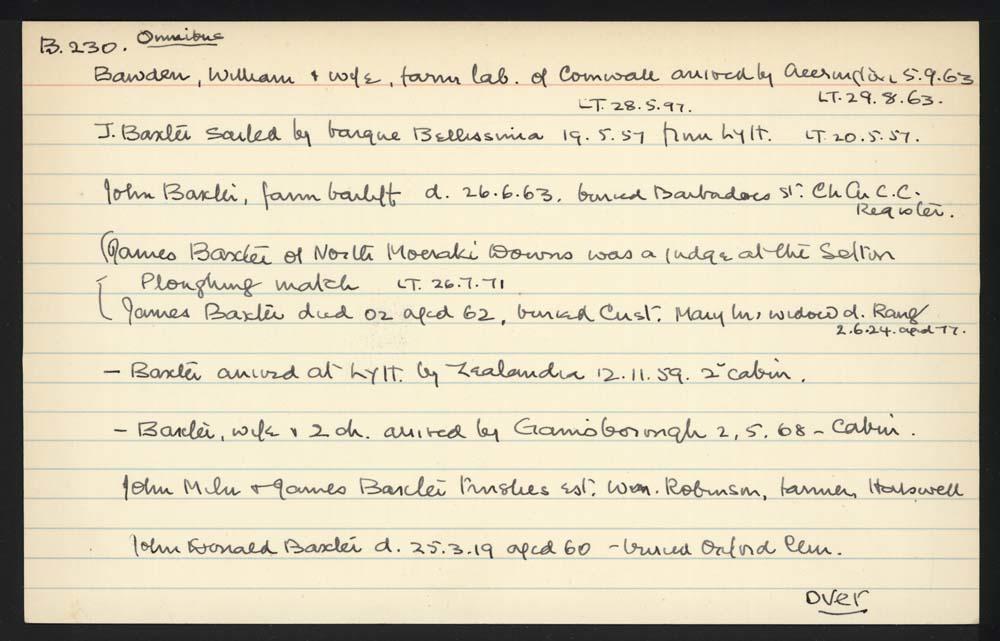 B.230. Omnibus
Bawden, William & wife, farm lab. of Cornwall arrived by Accrington 5.9.63
LT. 28.5.97. LT. 29.8.63.
J. Baxter sailed by barque Bellissima 19.5.57 from Lytt. LT 20.5.57.
John Baxter, farm bailiff d. 26.6.63. buried Barbadoes St. Ch Ch C.C.
Register.
James Baxter of North Moeraki Downs was a judge at the Sefton
Ploughing match LT. 26.7.71
James Baxter died 02 aged 62, buried Cust. Mary his widow d. Rang
2.6.24. aged 77.
- Baxter arrived at Lytt. by Zealandia 12.11.59. 2" cabin.
- Baxter, wife & 2 ch. arrived by Gainsborough 2.5.68 - Cabin.
John Miln & James Baxter trustees est. Wm. Robinson, farmer, Halswell
John Donald Baxter d. 25.3.19 aged 60 - buried Oxford Cem.
Over